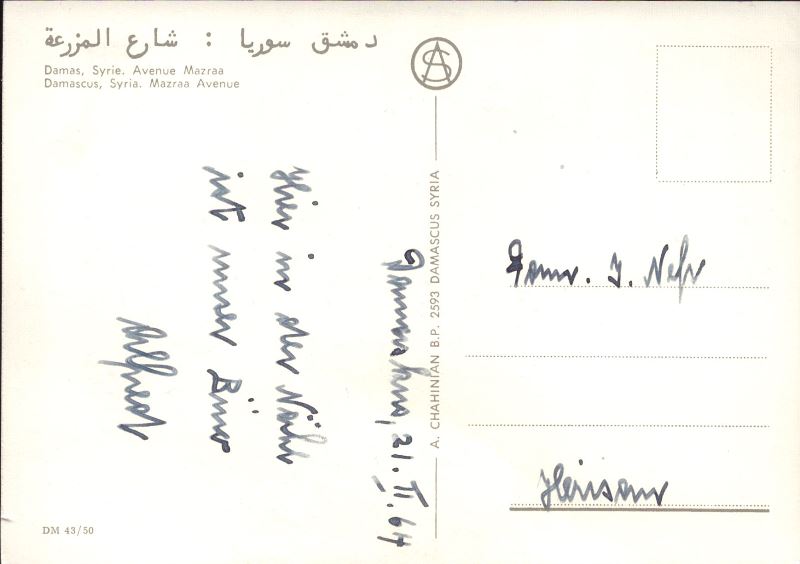 دمشق سوريا : شارع المزرعة
Damas, Syrie. Avenue Mazraa
Damascus, Syria. Mazraa Avenue
Damaskus, 21. II. 64
Hier in der Nähe
ist unser Büro
Alfred
A. CHAHINIAN B.P. 2593 DAMASCUS SYRIA
Fam. J. Nef
Herisau
DM 43/50